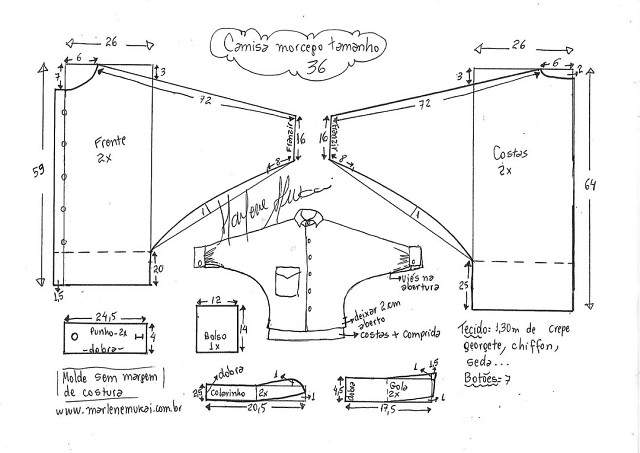 Camisa morcego tamanho
36
26
6
7
3
72
Frente
2x
59
Franzir
16
8
1
20
1,5
26
6
2
3
72
Costas
2x
64
Franzir
16
8
1
25
Marlene Mukai
24,5
Punho-2x
-dobra-
4
12
Bolso
1x
14
viés na
abertura
deixar 2cm
aberto
costas + comprida
Tecido: 1,30m de crepe
georgete, chiffon,
seda...
Botões= 7
Molde sem margem
de costura
www.marlenemukai.com.br
dobra
2,5
colarinho
2x
1
1
20,5
4,5
dobra
Gola
2x
1
1,5
1
17,5